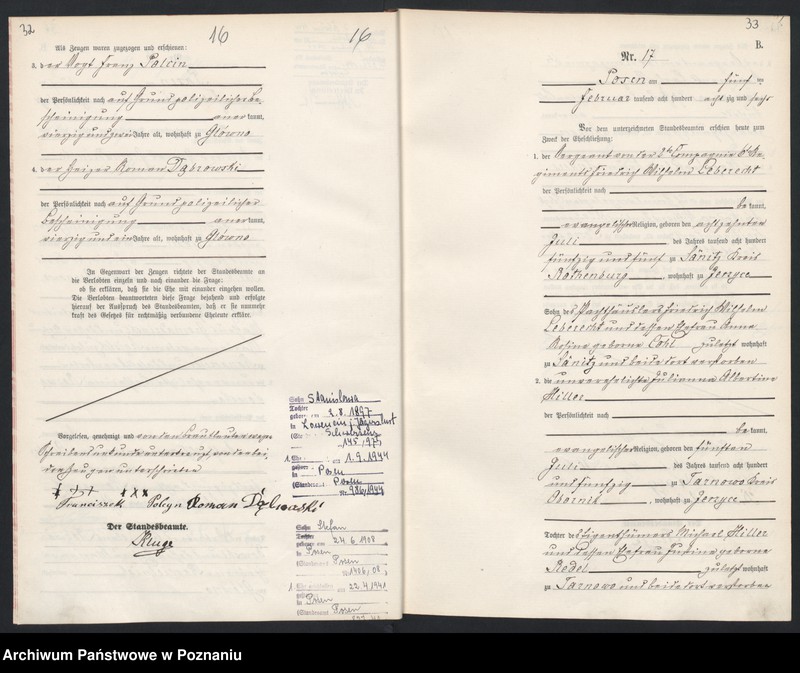 32
16
Als Zeugen waren zugezogen und erschienen:
3. der Vogt Franz Polcin
der Persönlichkeit nach auf Grund polizeilicher Be-
scheinigung anerkannt,
vierzig und zwei Jahre alt, wohnhaft zu Główno
4. der Heizer Roman Dąbrowski
der Persönlichkeit nach auf Grund polizeilicher
Bescheinigung anerkannt,
vierzig und ein Jahre alt, wohnhaft zu Główno
In Gegenwart der Zeugen richtete der Standesbeamte an
die Verlobten einzeln und nach einander die Frage:
ob sie erklären, daß sie die Ehe mit einander eingehen wollen.
Die Verlobten beantworteten diese Frage bejahend und erfolgte
hierauf der Ausspruch des Standesbeamten, daß er sie nunmehr
kraft des Gesetzes für rechtmäßig verbundene Eheleute erkläre.
Vorgelesen, genehmigt und von den Brautleuten wegen
Schreibensunkunde unterkreuzt, von den bei-
den Zeugen unterschrieben
+++ +xx
Franciszek Polcyn Roman Dąbrowski
Der Standesbeamte.
Kluge
16
Sohn Stanislawa
Tochter
geboren am 2.8.1897
in
1. Ehe am 1.9.1944
in Posen
(Standesamt Posen
Nr. 986/1944
Sohn Stefan
Tochter
geboren am 24.6.1908
in Posen
(Standesamt Posen
Nr. 1406/08)
1. Ehe am 22.4.1941
in Posen
(Standesamt Posen
33
B.
Nr. 17
Posen am fünf ten
Februar tausend acht hundert achtzig und sechs
Vor dem unterzeichneten Standesbeamten erschien heute zum
Zweck der Eheschließung:
1. der Sergeant von der 3ten Compagnie 6ten Re-
giments Friedrich Wilhelm Leberecht
der Persönlichkeit nach
bekannt,
evangelischer Religion, geboren den achtzehnten
Juli des Jahres tausend acht hundert
fünfzig und fünf zu Sänitz Kreis
Rothenburg, wohnhaft zu Jerzyce
Sohn des Friedrich Wilhelm
Leberecht und dessen Ehefrau Anna
Rosina geborne Cohl zuletzt wohnhaft
zu Sänitz und beide dort verstorben
2. die unverehelichte Julianna Albertine
Hiller
der Persönlichkeit nach
bekannt,
evangelischer Religion, geboren den fünften
Juli des Jahres tausend acht hundert
und fünfzig zu Tarnowo Kreis
Obornik, wohnhaft zu Jerzyce
Tochter des Eigenthümers Michael Hiller
und dessen Ehefrau geborne
Redel zuletzt wohnhaft
zu Tarnowo und beide dort verstorben
Archiwum Państwowe w Poznaniu